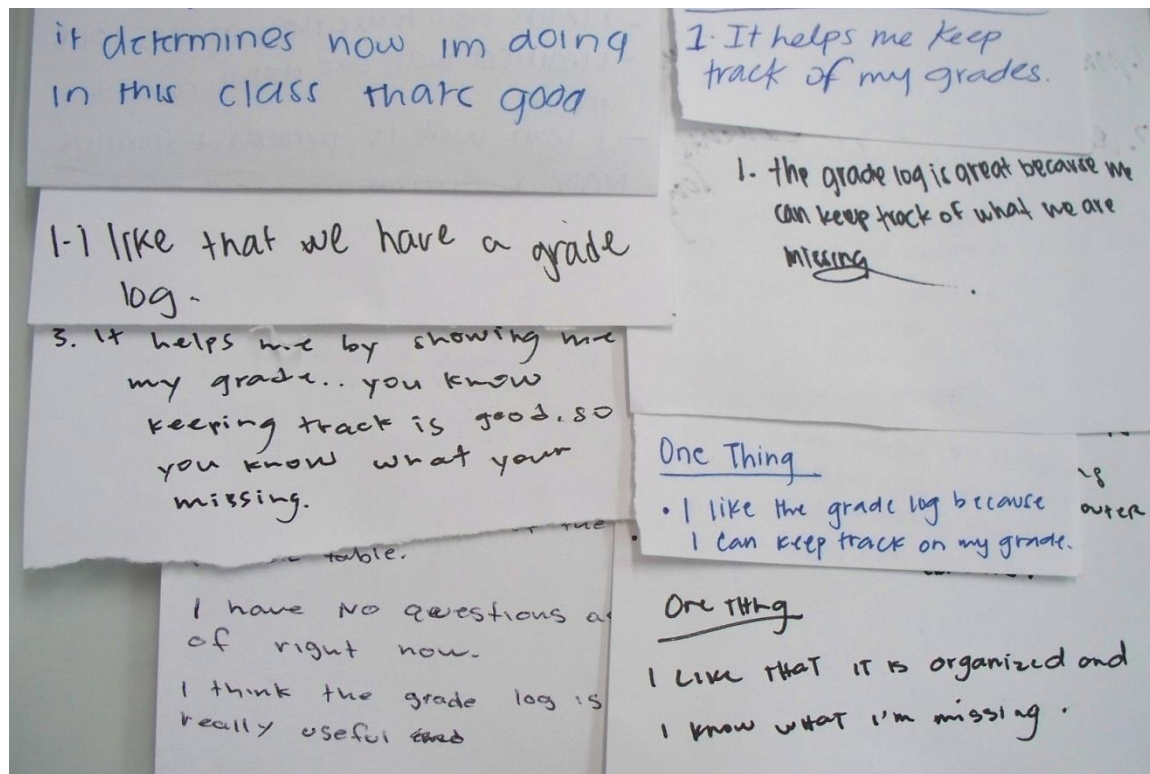 it determines now im doing
in this class thats good
1-I like that we have a grade
log.
3. It helps me by showing me
my grade.. you know
keeping track is good. so
you know what your
missing.
the
table.
I have NO questions as
of right now.
I think the grade log is
really useful
1. It helps me keep
track of my grades.
1. the grade log is great because we
can keep track of what we are
missing.
One Thing
• I like the grade log because
I can keep track on my grade.
outer
One Thing
I LIKE THAT IT IS organized and
I know what I'm missing.